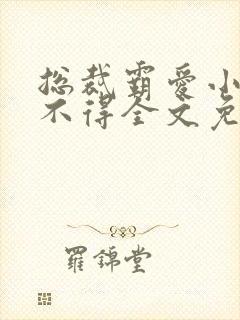 总裁霸爱小
不得全文免
羅錦堂